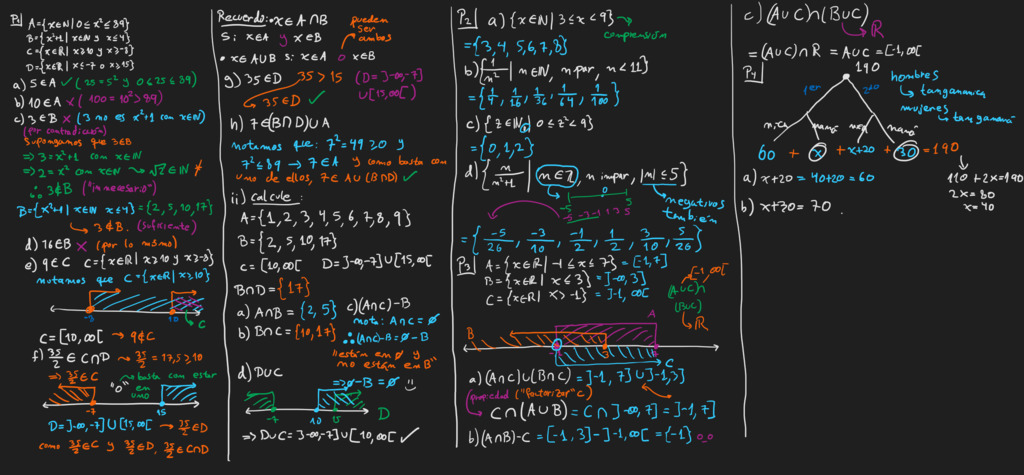 P1
A={x∈ℕ|0≤x²≤89}
B={x²+1|x∈ℕ y x≤4}
C={x∈ℝ|x≥10 y x≥-3}
D={x∈ℝ|x≤-7 o x≥15}
a) 5∈A ✓ (25=5² y 0≤25≤89)
b) 10∈A × (100=10²>89)
c) 3∈B × (3 no es x²+1 con x∈ℕ)
(por contradicción)
Supongamos que 3∈B
⇒ 3=x²+1 con x∈ℕ
⇒ 2=x² con x∈ℕ → √2∈ℕ ↯
∴ 3∉B ("innecesario")
B={x²+1|x∈ℕ x≤4}={2,5,10,17}
→ 3∉B. (suficiente)
d) 16∈B × (por lo mismo)
e) 9∈C C={x∈ℝ|x≥10 y x≥-3}
notamos que C={x∈ℝ|x≥10}
-3 10 C
C=[10,∞[ → 9∉C
f) 35/2 ∈ C∩D → 35/2=17,5≥10
⇒ 35/2∈C "o" → basta con estar en uno
-7 15
D=]-∞,-7]∪[15,∞[ → 35/2∈D
como 35/2∈C y 35/2∈D, 35/2∈C∩D
Recuerdo: • x∈A∩B
si x∈A y x∈B
pueden ser ambos
• x∈A∪B si x∈A o x∈B
g) 35∈D 35>15 (D=]-∞,-7]
∪[15,∞[)
→ 35∈D ✓
h) 7∈(B∩D)∪A
notamos que: 7²=49≥0 y
7²≤89 → 7∈A y como basta con
uno de ellos, 7∈A∪(B∩D) ✓
ii) calcule:
A={1,2,3,4,5,6,7,8,9}
B={2,5,10,17}
C=[10,∞[ D=]-∞,-7]∪[15,∞[
B∩D={17}
a) A∩B={2,5}
b) B∩C={10,17}
c) (A∩C)-B
nota: A∩C=∅
∴ (A∩C)-B=∅-B
"están en ∅ y
no están en B"
⇒ ∅-B=∅ :)
d) D∪C
-7 10 15 D
⇒ D∪C=]-∞,-7]∪[10,∞[ ✓
P2
a) {x∈ℕ|3≤x<9} → comprensión
={3,4,5,6,7,8}
b) {1/n² | n∈ℕ, n par, n<11}
={1/4, 1/16, 1/36, 1/64, 1/100}
c) {z∈ℕ0|0≤z²<9}
={0,1,2}
d) {n/(n²+1) | n∈ℤ, n impar, |n|≤5}
-5 0 5
-5 -3 -1 1 3 5
negativos también
={-5/26, -3/10, -1/2, 1/2, 3/10, 5/26}
P3
A={x∈ℝ|-1≤x≤7}=[-1,7]
B={x∈ℝ|x≤3}=]-∞,3]
C={x∈ℝ|x>-1}=]-1,∞[
[-1,∞[
(A∪C)∩
(B∪C)
→ ℝ
B A
-1 3 7
C
a) (A∩C)∪(B∩C)=]-1,7]∪]-1,3]
propiedad ("factorizar" C)
C∩(A∪B)=C∩]-∞,7]=]-1,7]
b) (A∩B)-C=[-1,3]-]-1,∞[={-1} 0_0
c) (A∪C)∩(B∪C)
→ ℝ
=(A∪C)∩ℝ=A∪C=[-1,∞[
P4
190
1er 2do
hombres
→ tangananica
mujeres
→ tanganana
nica naná nica naná
60 + x + x+20 + 30 =190
a) x+20=40+20=60
110+2x=190
2x=80
x=40
b) x+30=70.